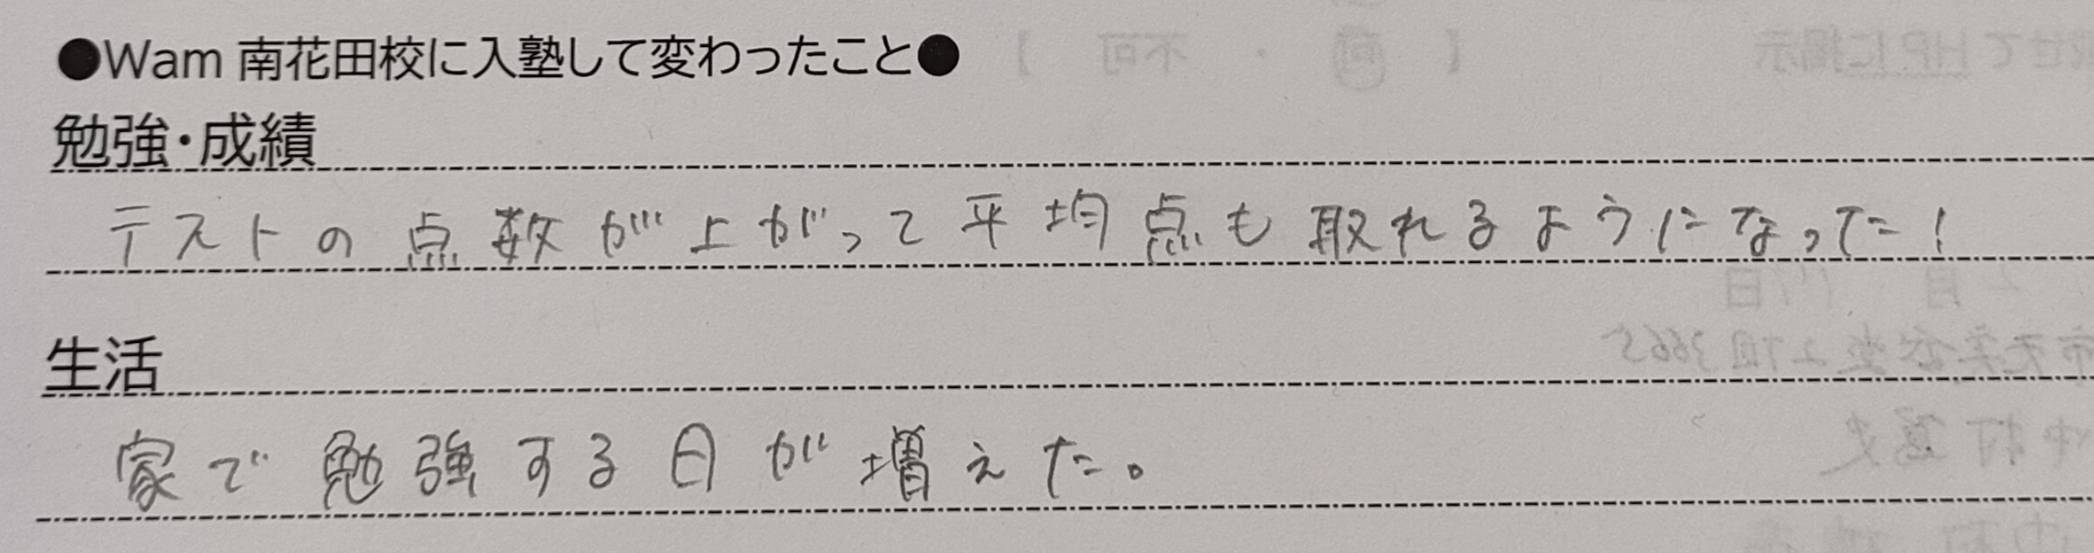 ●Wam 南花田校に入塾して変わったこと●
勉強・成績
テストの点数が上がって平均点も取れるようになった!
生活
家で勉強する日が増えた。